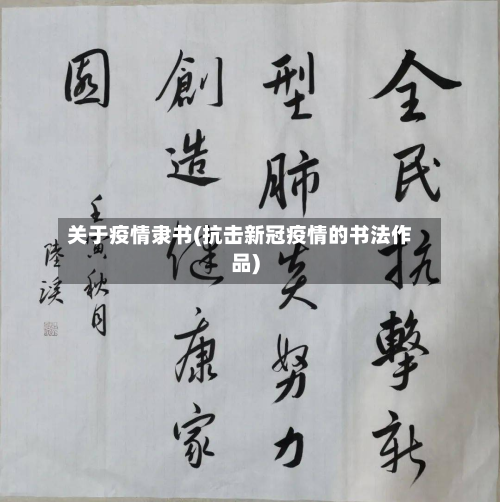 全民抗擊新
型肺炎努力
創造健康家
園
壬寅秋月
陸溪
关于疫情隶书(抗击新冠疫情的书法作
品)